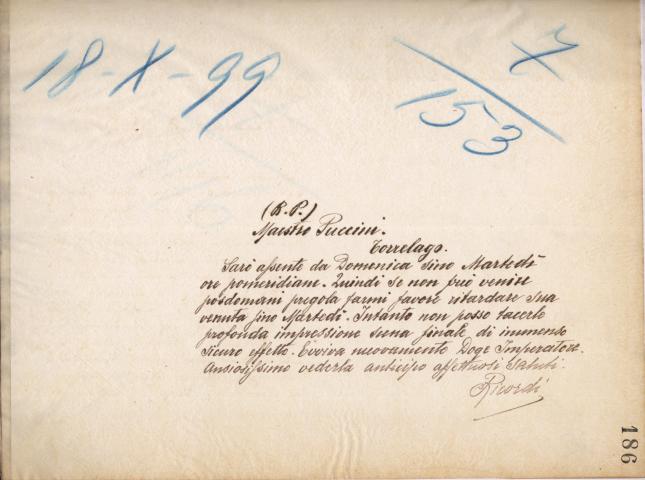 18-X-99
7/153
(R.P.)
Maestro Puccini.
Torrelago.
Sarò assente da Domenica sino Martedì
ore pomeridiane. Quindi se non può venire
posdomani pregola farmi favore ritardare sua
venuta fino Martedì. Intanto non posso tacerle
profonda impressione scena finale di immenso
sicuro effetto. Evviva nuovamente Doge Imperatore.
Ansiosissimo vederla anticipo affettuosi saluti.
Ricordi
186